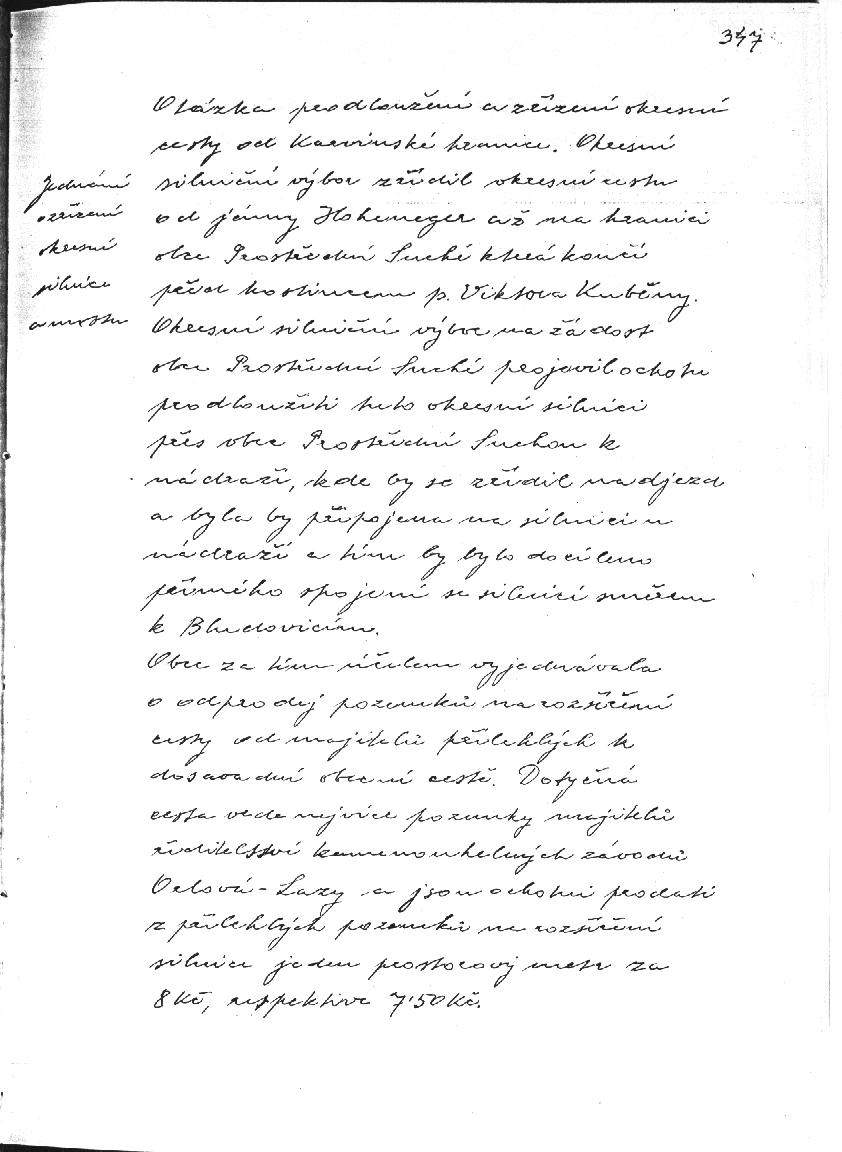 347
Otázka prodloužení a zřízení okresní
cesty od Karvinské hranice. Okresní
silniční výbor zřídil okresní cestu
od jámy Hoheneger až na hranici
obce Prostřední Suché která končí
před hostincem p. Viktora Kuběny.
Okresní silniční výbor na žádost
obce Prostřední Suché projevil ochotu
prodloužiti tuto okresní silnici
přes obec Prostřední Suchou k
nádraží, kde by se zřídil nadjezd
a byla by připojena na silnici u
nádraží a tím by bylo docíleno
přímého spojení se silnicí směrem
k Bludovicím.
Obec za tím účelem vyjednávala
o odprodej pozemků na rozšíření
cesty od majitelů přilehlých k
dosavadní obecní cestě. Dotyčná
cesta vede nejvíce pozemky majitelů
ředitelství kamenouhelných závodů
Orlová-Lazy a jsou ochotni prodati
z přilehlých pozemků na rozšíření
silnice jeden prostorový metr za
8 Kč, respektive 7·50 Kč.
Jednání
o zřízení
okresní
silnice
a mostu